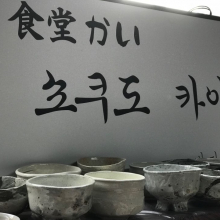 食堂かい
쇼쿠도 카이